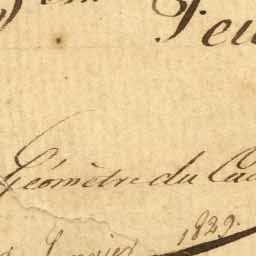 Feu
Géomètre du Cad
Janvier 1829.